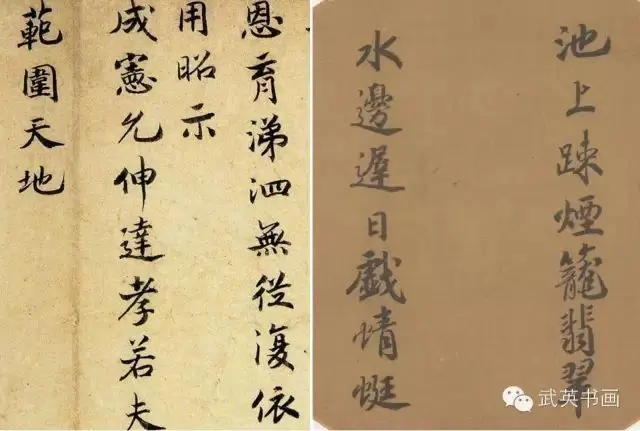 恩育涕泗無從復依
用昭示
成憲允伸達孝若夫
範圍天地
池上踈煙籠翡翠
水邊遲日戯蜻蜓
武英书画